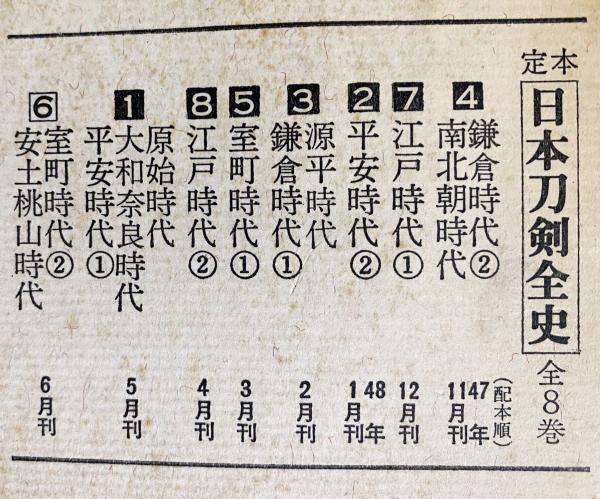 定本
日本刀剣全史
全8巻
(配本順)
4
鎌倉時代②
南北朝時代
47年
11月刊
7
江戸時代①
12月刊
2
平安時代②
48年
1月刊
3
源平時代
鎌倉時代①
2月刊
5
室町時代①
3月刊
8
江戸時代②
4月刊
1
原始時代
大和奈良時代
平安時代①
5月刊
6
室町時代②
安土桃山時代
6月刊